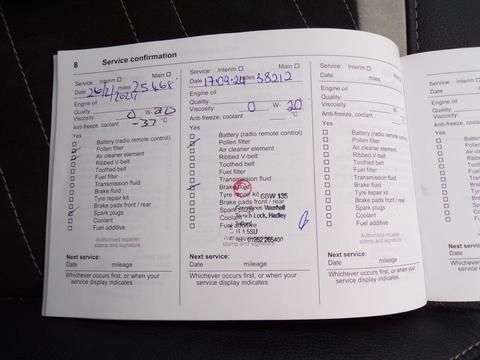 8 Service confirmation
Service: Interim Main
Date 26/2/2021 miles 25468
Engine oil
Quality
Viscosity 0 W- 20
Anti-freeze, coolant -37 °C
Yes
Battery (radio remote control)
Pollen filter
Air cleaner element
Ribbed V-belt
Toothed belt
Fuel filter
Transmission fluid
Brake fluid
Tyre repair kit
Brake pads front / rear
Spark plugs
Coolant
Fuel additive
Authorised repairer
stamp and signature
Next service:
Date mileage
Whichever occurs first, or when your
service display indicates.
Service: Interim Main
Date 17-09-24 miles 38212
Engine oil
Quality
Viscosity 0 W- 20
Anti-freeze, coolant °C
Yes
Battery (radio remote control)
Pollen filter
Air cleaner element
Ribbed V-belt
Toothed belt
Fuel filter
Transmission fluid
Brake fluid
Tyre repair kit
Brake pads front / rear
Spark plugs
Coolant
Fuel additive
GBW 135
Vauxhall
Lock, Hadley
5SU
Authorised repairer
stamp and signature
Next service:
Date mileage
Whichever occurs first, or when your
service display indicates.
Service: Interim Main
Date miles
Engine oil
Quality
Viscosity W-
Anti-freeze, coolant °C
Yes
Battery (radio remote control)
Pollen filter
Air cleaner element
Ribbed V-belt
Toothed belt
Fuel filter
Transmission fluid
Brake fluid
Tyre repair kit
Brake pads front / rear
Spark plugs
Coolant
Fuel additive
Authorised repairer
stamp and signature
Next service:
Date mileage
Whichever occurs first, or when your
service display indicates.
Service:
Date
Engine oil
Quality
Viscosity
Anti-freeze, coolant
Yes
Battery
Pollen
Air cle
Ribbed
Toothed
Fuel
Next service:
Date
Whichever occurs
service display